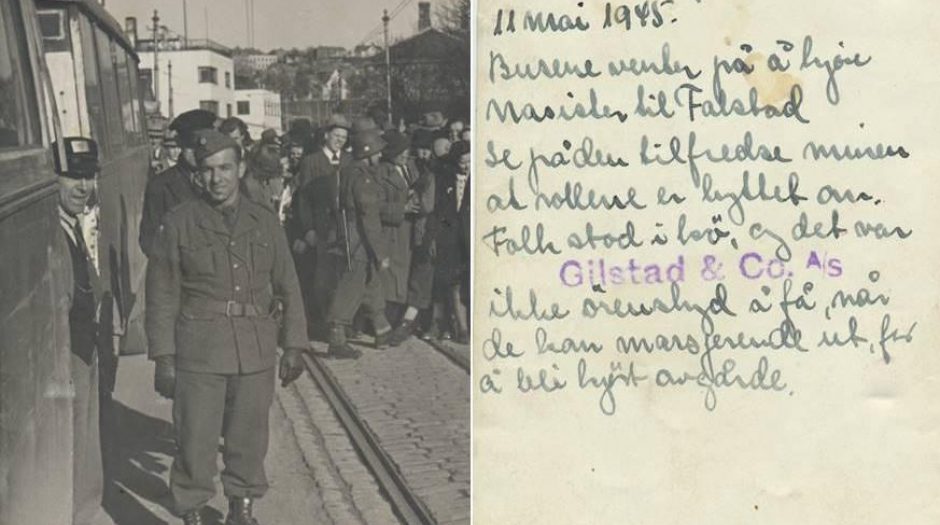 11 mai 1945.
Bussene venter på å kjöre
Nasister til Falstad
Se på den tilfredse minen
at rollene er byttet om.
Folk stod i kö, og det var
Gilstad & Co. A/s
ikke örenslyd å få, når
de kom marsjerende ut, for
å bli kjört avgårde.